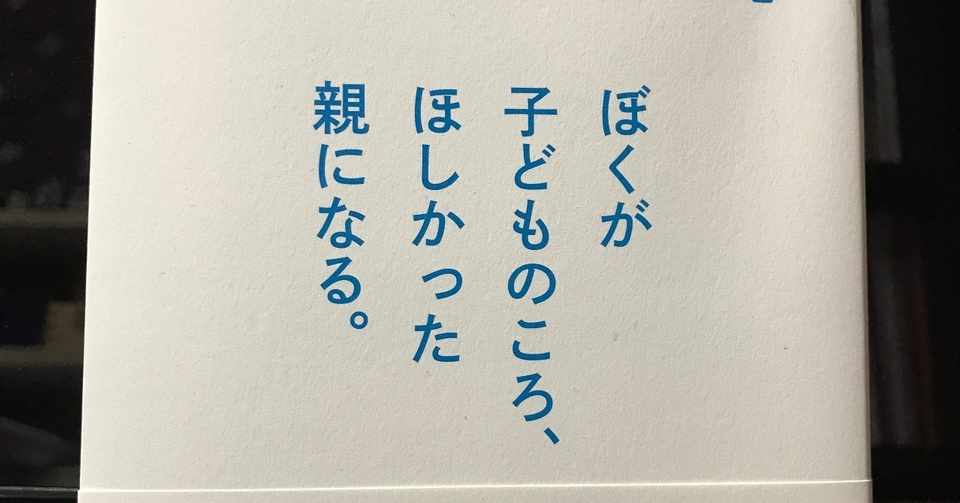 ぼくが
子どものころ、
ほしかった
親になる。